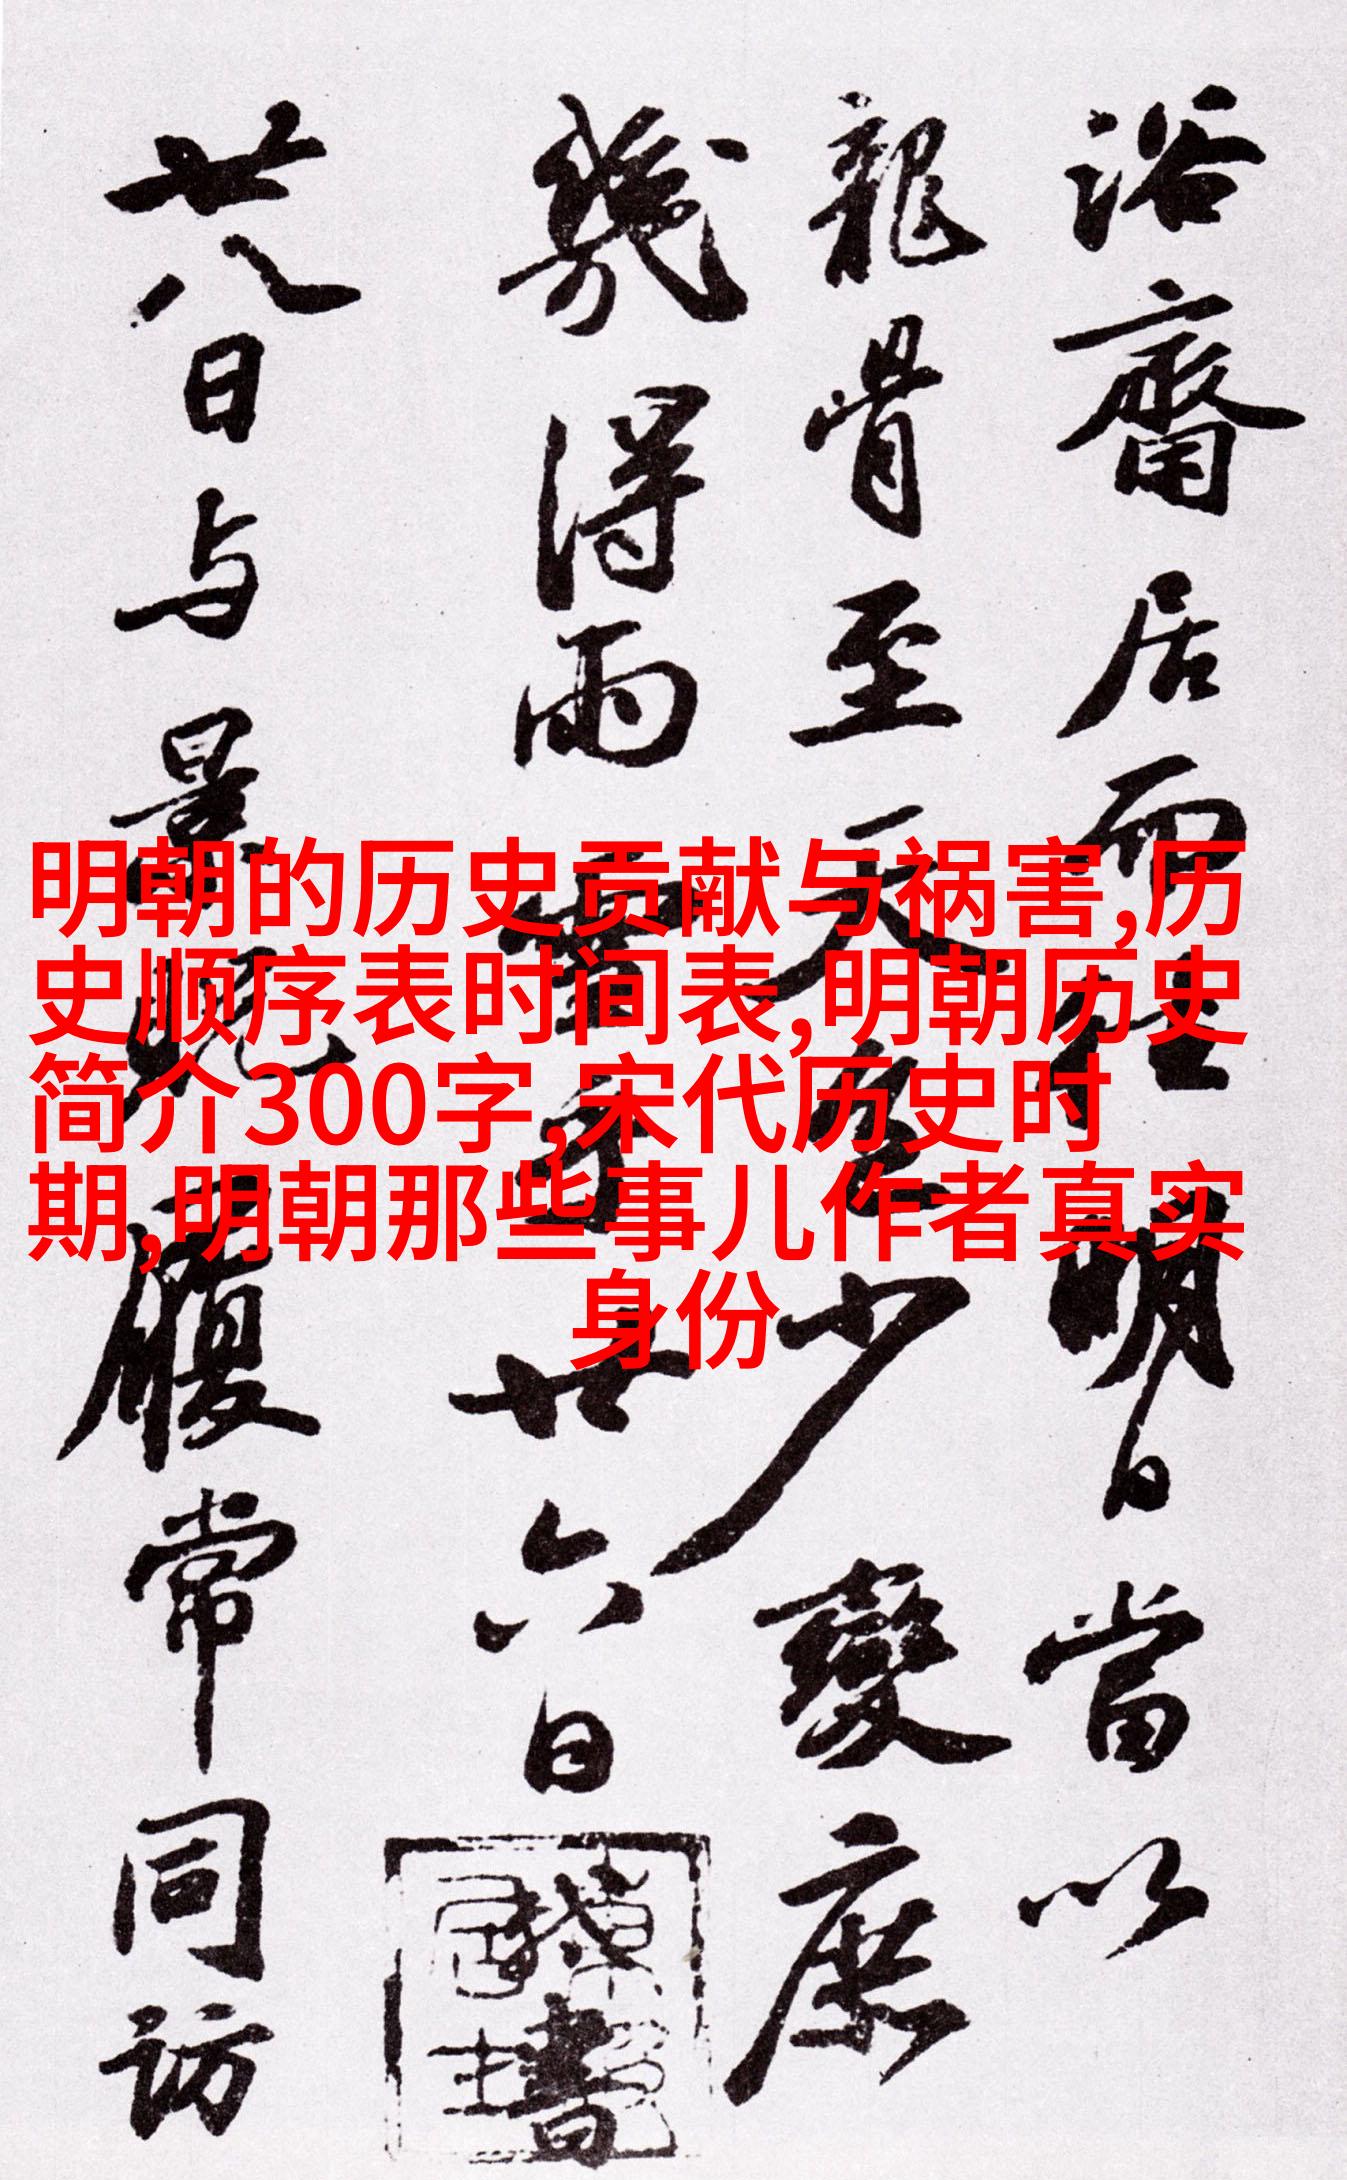 浴齋居而经明日當以
龍骨至天慶少變庶
幾得雨雪乎廿六日
書
廿八日与景貺履常同訪
明朝的历史贡献与祸害,历
史顺序表时间表,明朝历史
简介300字,宋代历史时
期,明朝那些事儿作者真实
身份